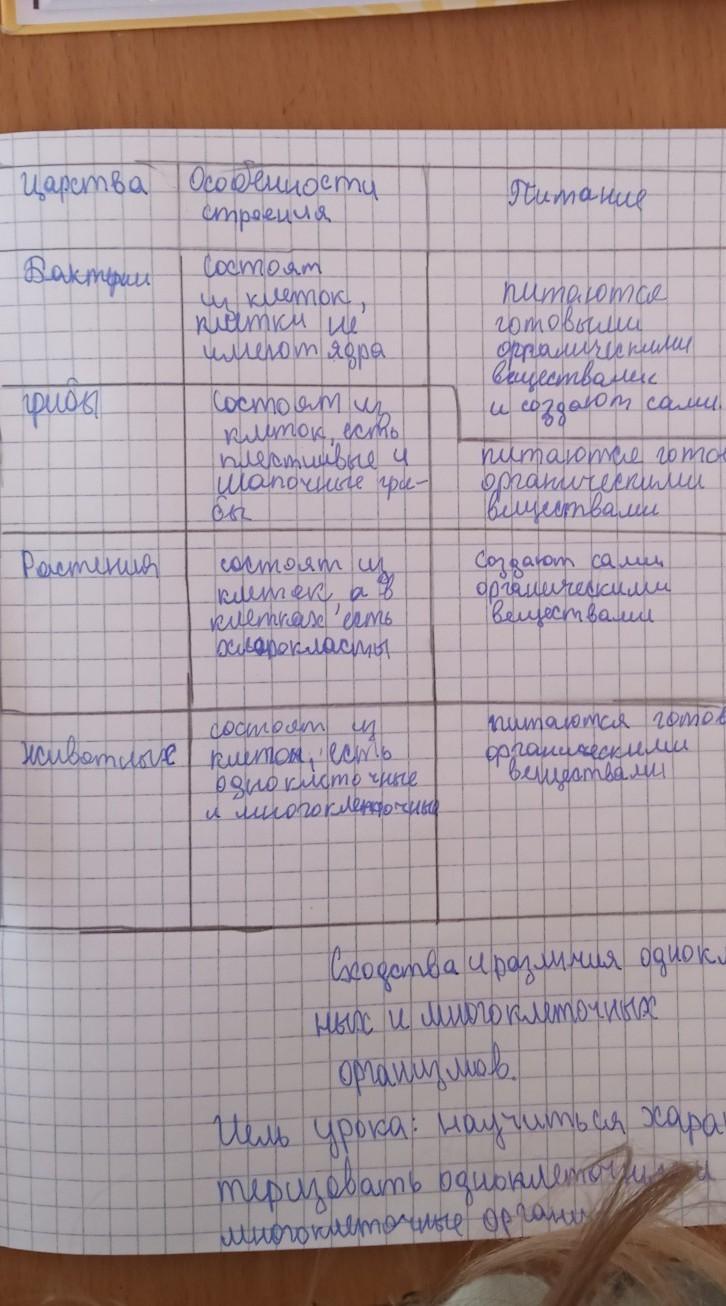 Царства Особенности Питание
строения
Бактерии состоят
из клеток,
клетки не
имеют ядра
питаются
готовыми
органическими
веществами
и создают сами.
грибы состоят из
клеток, есть
плестивые и
шапочные гри-
бы
питаются гото
органическими
веществами
Растения состоят из
клеток а в
клетках есть
создают сами
органическими
веществами
животные состоят из
клеток, есть
одноклеточные
и многоклеточные
питаются готов
органическими
веществами
Сходства и различия однокл
ных и многоклеточных
организмов.
Цель урока: научиться хара
теризовать
многоклеточные органи